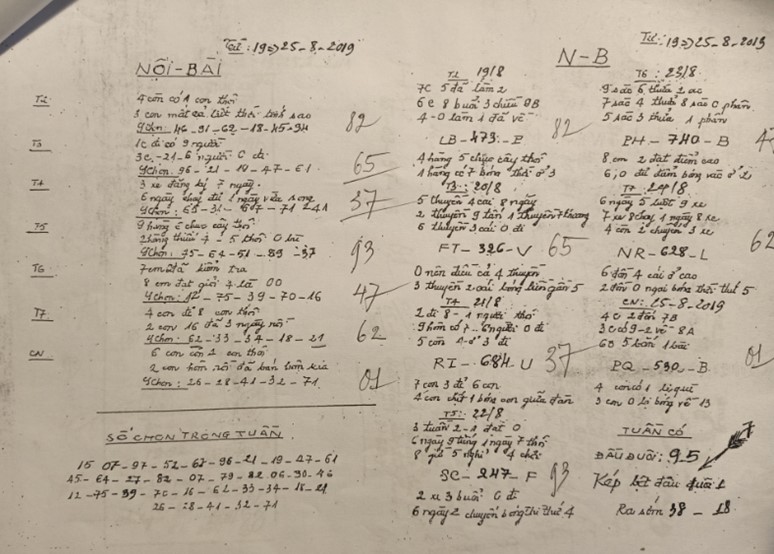 Từ: 19=>25-8-2019
NỘI-BÀI
T2
4 còn có 1 con thôi
3 con mất cả lượt thôi biết sao
9chọn: 46-91-62-18-45-94
82
T3
1c đi có 9 người
3c,-21-6 người 0 đi
9chọn: 96-21-19-47-61
65
T4
3 xe đăng ký 7 ngày
6 ngày chạy đủ 1 ngày vừa xong
37
T5
9 hàng 6 chào cây thôi
9chọn: 75-64-51-89-37
93
T6
7 em đã kiểm tra
8 em đạt giỏi 4 là 00
9chọn: 12-75-39-70-16
47
T7
4 con đi 8 con thôi
2 con 16 đã 3 ngày rồi
9chọn: 62-33-34-18-21
62
CN
6 con còn 4 con thôi
2 con hôm rồi đã bán hôm kia
9chọn: 26-28-41-32-71
01
SỐ CHỌN TRONG TUẦN
15 07-97-52-62-96-21-19-47-61
45-64-27-82-07-79-82 06-30-46
12-75-39-70-16-62-33-34-18-21
26-28-41-32-71
Từ: 19=>25-8-2019
N-B
T2 19/8
7C 5 đã làm 2
6C 8 buổi 3 chiều 9B
4-0 làm 1 đã về
LB-473-P
82
4 hàng 5 chào cây thôi
1 hàng có 7 bông thôi ở 3
T3: 20/8
5 thuyền 4 cái 8 ngày
2 thuyền 9 tấn 1 thuyền 7 thương
6 thuyền 3 cái 0 đi
FT-326-V
65
0 nên điều cả 4 thuyền
3 thuyền 2 cái bóng liền gần 5
T4 21/8
2 đi 8-1 người thôi
9 hôm có 7-6 người 0 đi
5 còn 4 ở 3 đi
RI-684-U
37
7 con 3 đẻ 6 con
4 con chết 1 bóng con giữa đàn
T5: 22/8
3 tuần 2-1 đạt 0
6 ngày 9 từng 1 ngày 7 thôi
8 giờ 5 nghỉ 4 chơi
SC-247-F
93
2 xe 3 buổi 0 đi
6 ngày 2 chuyến bóng thì thứ 4
T6: 23/8
9 sào 6 thửa 2 ac
7 sào 4 thửa 8 sào 0 phân
5 sào 3 thửa 1 phân
PH-740-B
8 em 2 đạt điểm cao
6,0 đủ điểm bóng vào ở 2
T7 24/8
6 ngày 5 lượt 9 xe
7 xe 8 chạy 1 ngày 8 xe
4 còn 2 chuyến 3 xe
NR-628-L
62
6 đồn 4 cái ở cao
2 đồn 0 ngoi bóng thôi thứ 5
CN: 25-8-2019
4c 2 đồn 7B
3c có 9-2 về 8A
6B 5 bán 1 bảo
PQ-590-B
01
4 con có 1 lị quì
3 con 0 lị bóng về 13
TUẦN CÓ
ĐẦU ĐUÔI: 95
Kép bệt đầu đuôi 1
Ra sớm 38-18